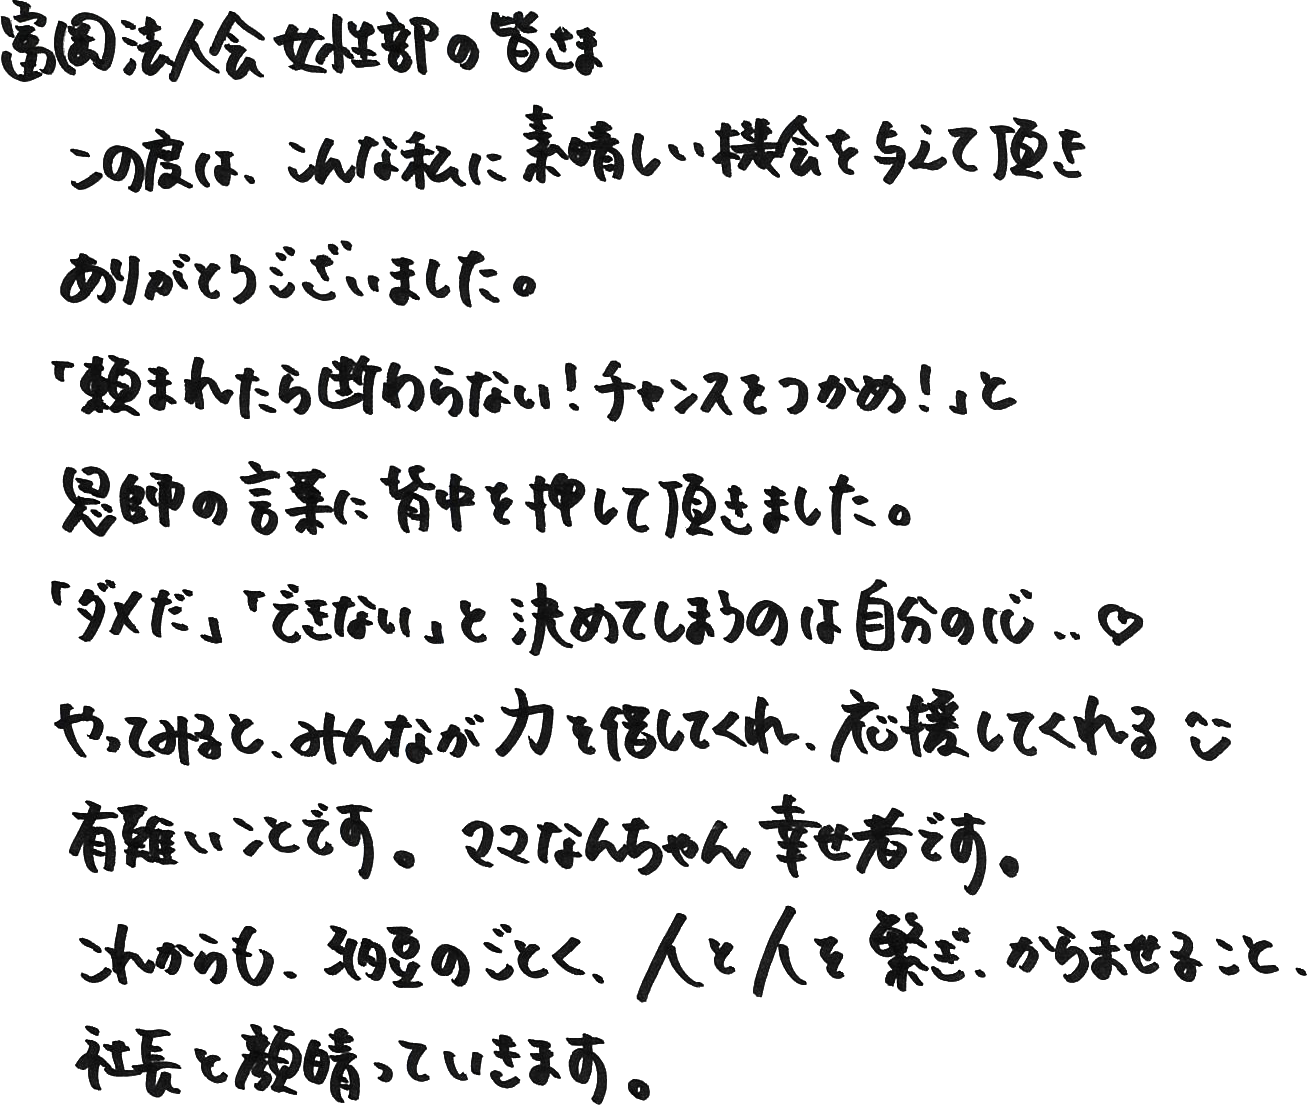 富岡法人会女性部の皆さま
この度は、こんな私に素晴しい機会を与えて頂き
ありがとうございました。
「頼まれたら断わらない！チャンスをつかめ！」と
恩師の言葉に背中を押して頂きました。
「ダメだ」「できない」と決めてしまうのは自分の心‥♡
やってみると、みんなが力を借してくれ、応援してくれる
有難いことです。ママなんちゃん幸せ者です。
これからも、納豆のごとく、人と人を繋ぎ、からませること、
社長と顔晴っていきます。